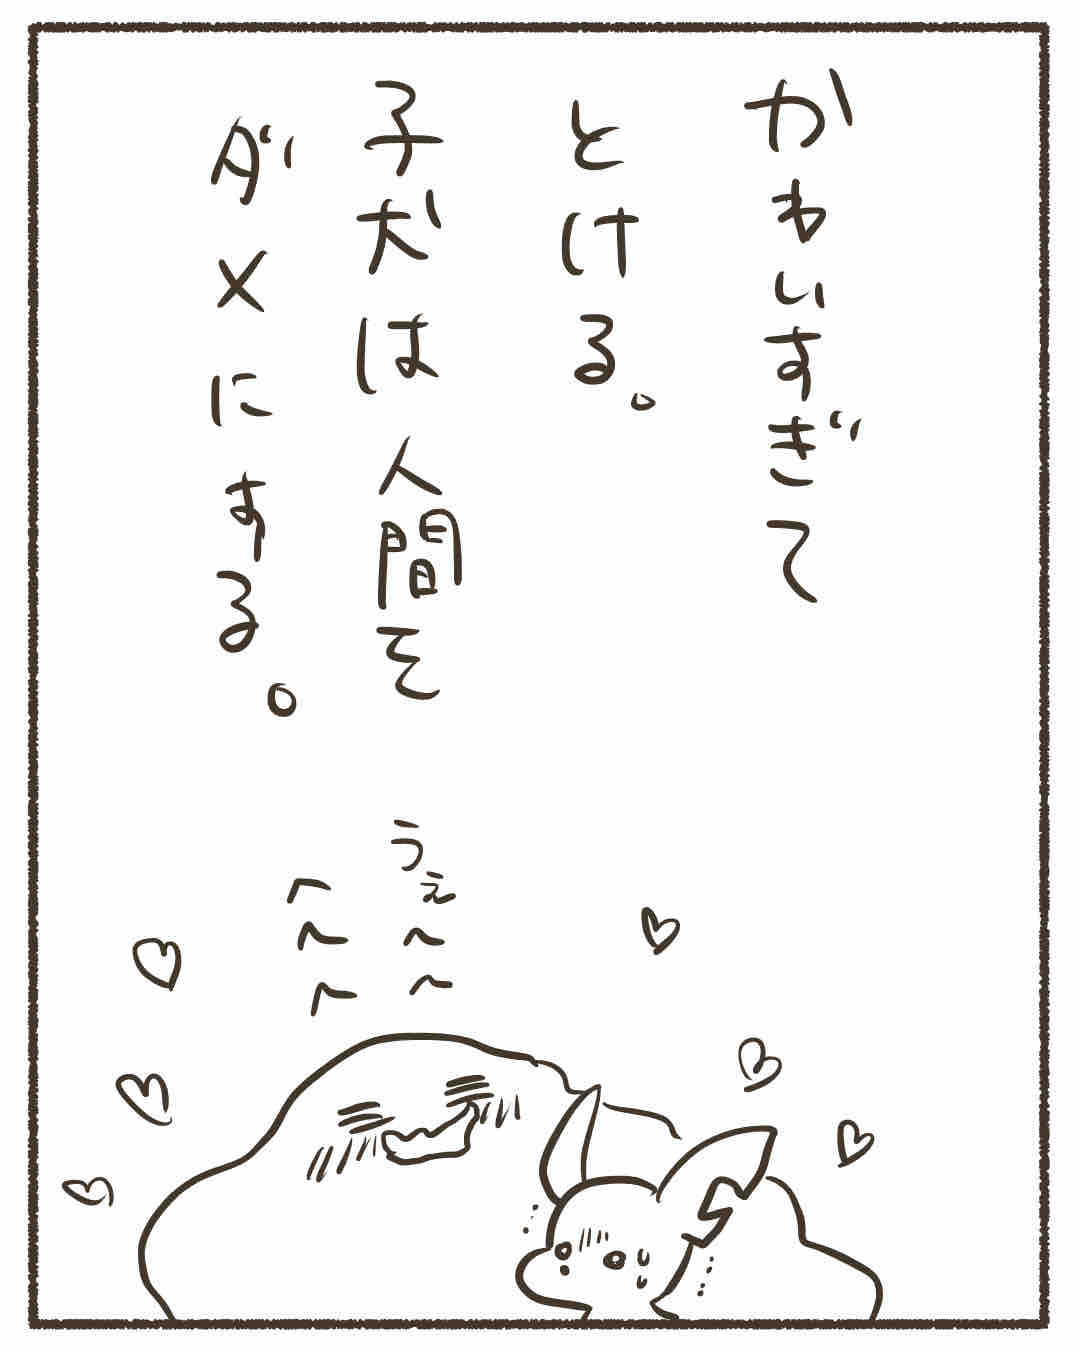 かわいすぎて
とける。
子犬は人間を
ダメにする。
うぇ〜〜
へ〜〜